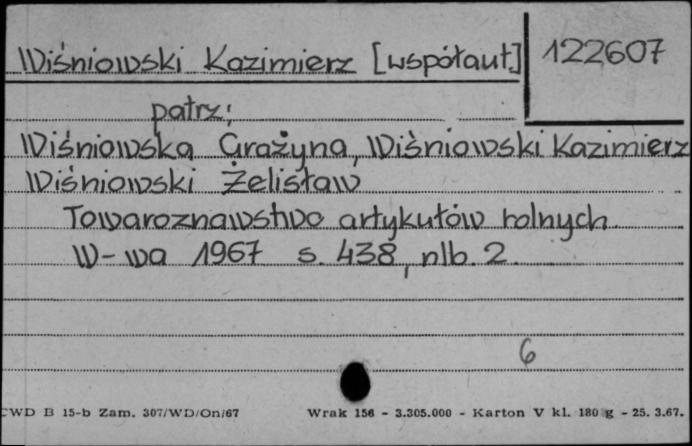 Wiśniowski Kazimierz [współaut]
122607
patrz:
Wiśniowska Grażyna, Wiśniowski Kazimierz
Wiśniowski Żelisław
Towaroznawstwo artykułów rolnych.
W-wa 1967 s. 438, nlb. 2.
6
CWD B 15-b Zam. 307/WD/On/67 Wrak 156 - 3.305.000 - Karton V kl. 180 g - 25. 3.67.